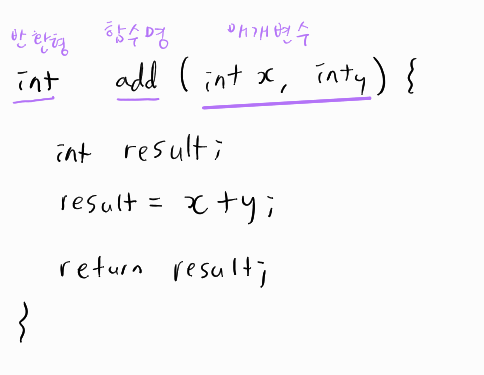 반환형 함수명 매개변수
int add ( int x, int y ) {
int result;
result = x + y;
return result;
}